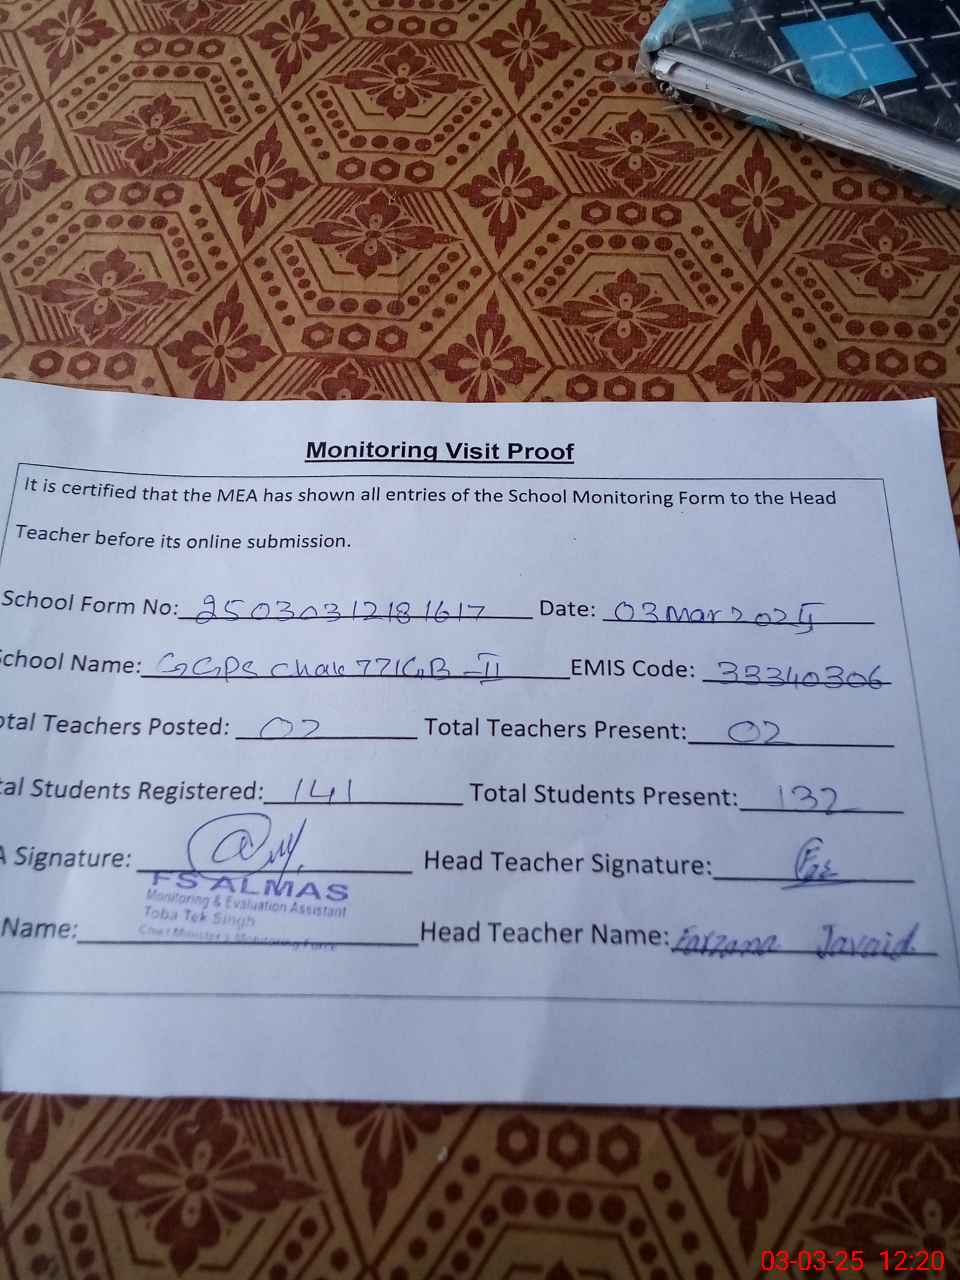 Monitoring Visit Proof
It is certified that the MEA has shown all entries of the School Monitoring Form to the Head
Teacher before its online submission.
School Form No: 25030312181617 Date: 03 Mar 2025
School Name: GGPS Chak 771GB-II EMIS Code: 33340306
otal Teachers Posted: 02 Total Teachers Present: 02
tal Students Registered: 141 Total Students Present: 132
A Signature: Head Teacher Signature:
FS ALMAS
Monitoring & Evaluation Assistant
Toba Tek Singh
Chief Minister's Monitoring Force
Name: Head Teacher Name: Farzana Javaid
03-03-25 12:20